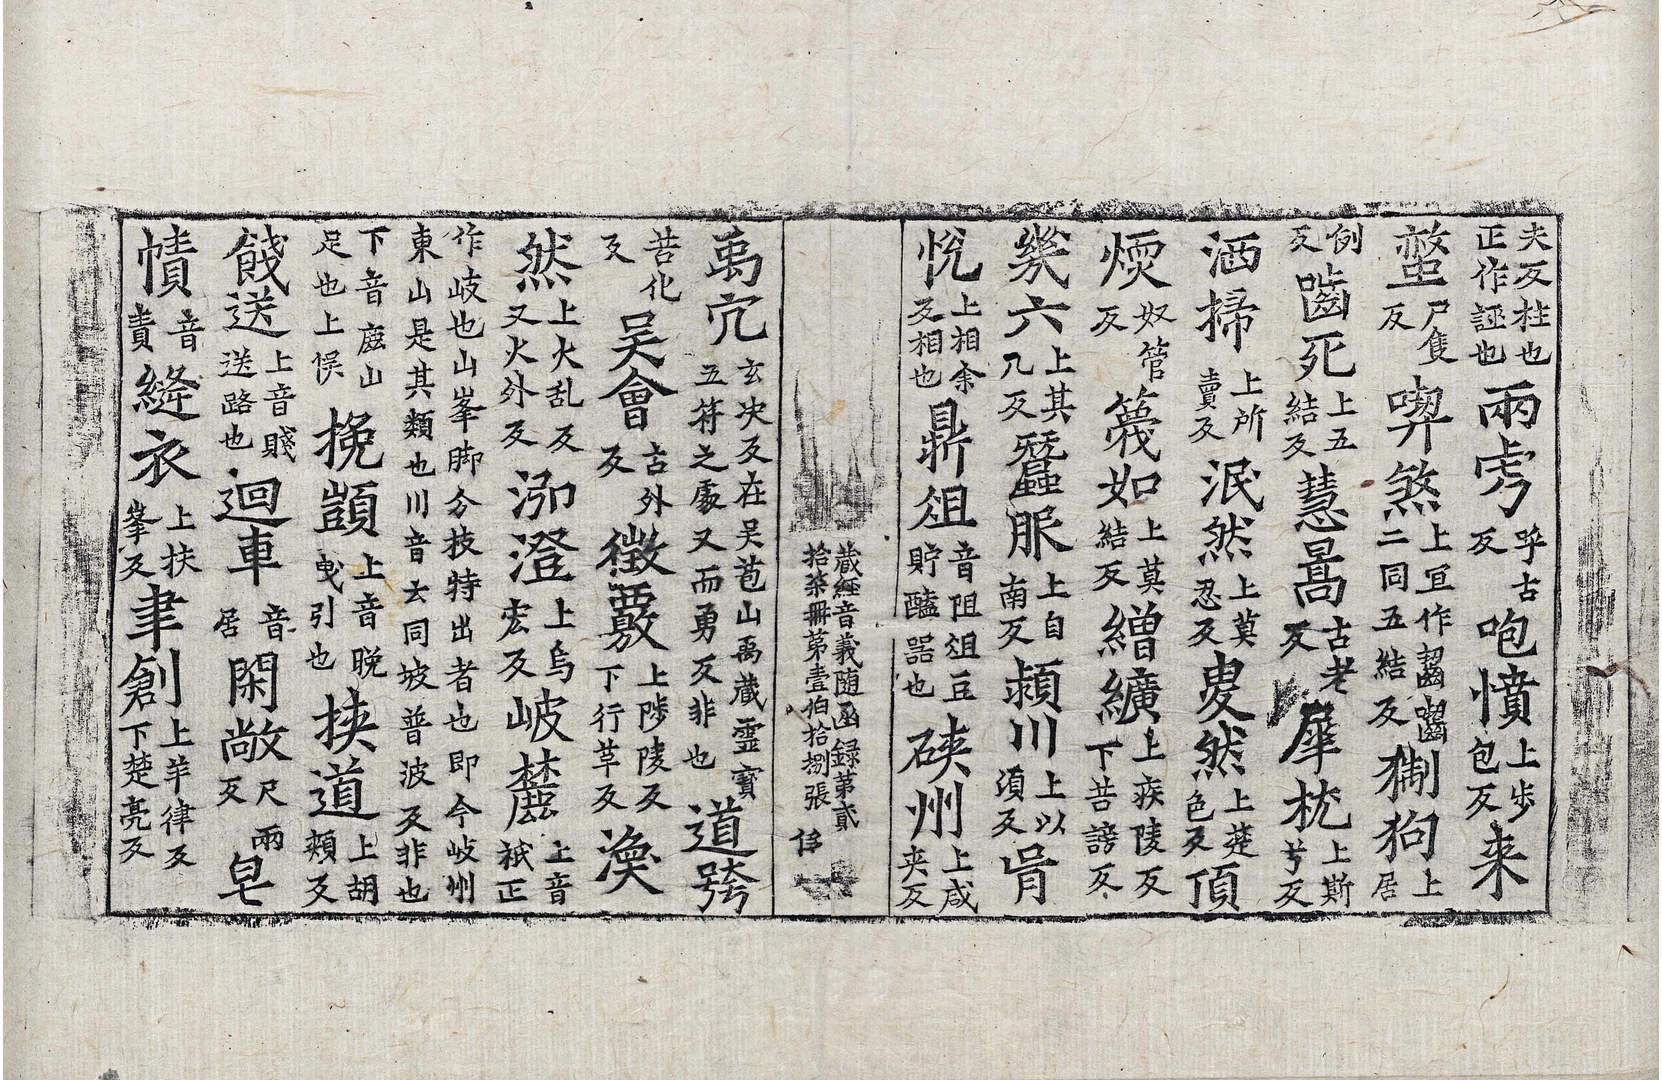 夫反拄也正作誣也兩虎呼古反咆憤上步包反来
螫尸隻反喫煞上宜作齧囓二同五結反猘狗上居
例反嚙死上五結反慧暠古老反犀枕上斯兮反
洒掃上所賣反泯然上莫忍反㚇然上楚色反頂
煗奴管反篾如上莫結反繒纊上疾陵反下苦謗反
幾六上其几反蠶眠上自南反潁川上以湏反肻
悅上相余反相也鼎俎音阻俎豆貯醯噐也硤州上咸夹反
藏經音義随函録第貳拾柒冊第壹伯拾捌張
禹穴玄决反在吴苞山禹藏霊寳五符之處又而勇反非也道跨
苦化反吴會古外反徵覈上陟陵反下行草反渙
然上火乱反又火外反泓澄上烏宏反岐麓上音祇正
作岐也山峯脚分枝特出者也即今岐州東山是其類也川音去同坡普波反非也
下音鹿山足也上悮挽顗上音晩曳引也挟道上胡頰反
餞送上音賤送路也迴車音居閑敞尺兩反皂
幘音責縫衣上扶峯反聿創上羊律反下楚亮反